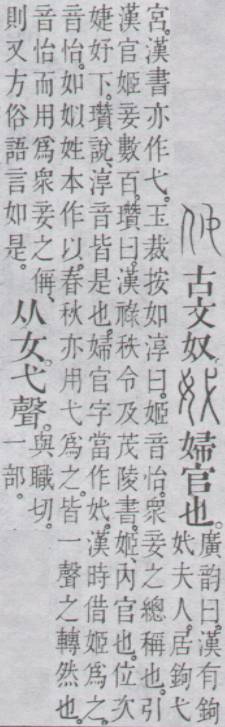 㚢古文奴。㚤婦官也。廣韵曰。漢有鉤
㚤夫人。居鉤弋
宮。漢書亦作弋。玉裁按如淳曰。姬音怡。衆妾之總稱也。引
漢官姬妾數百。瓚曰漢祿秩令及茂陵書。姬、內官也。位次
婕妤下。瓚說、淳音皆是也。婦官字當作㚤。漢時借姬爲之。
音怡。如姒姓本作以。春秋亦用弋爲之。皆一聲之轉然也。
音怡而用爲衆妾之偁、
則又方俗語言如是。从女。弋聲。與職切。
一部。